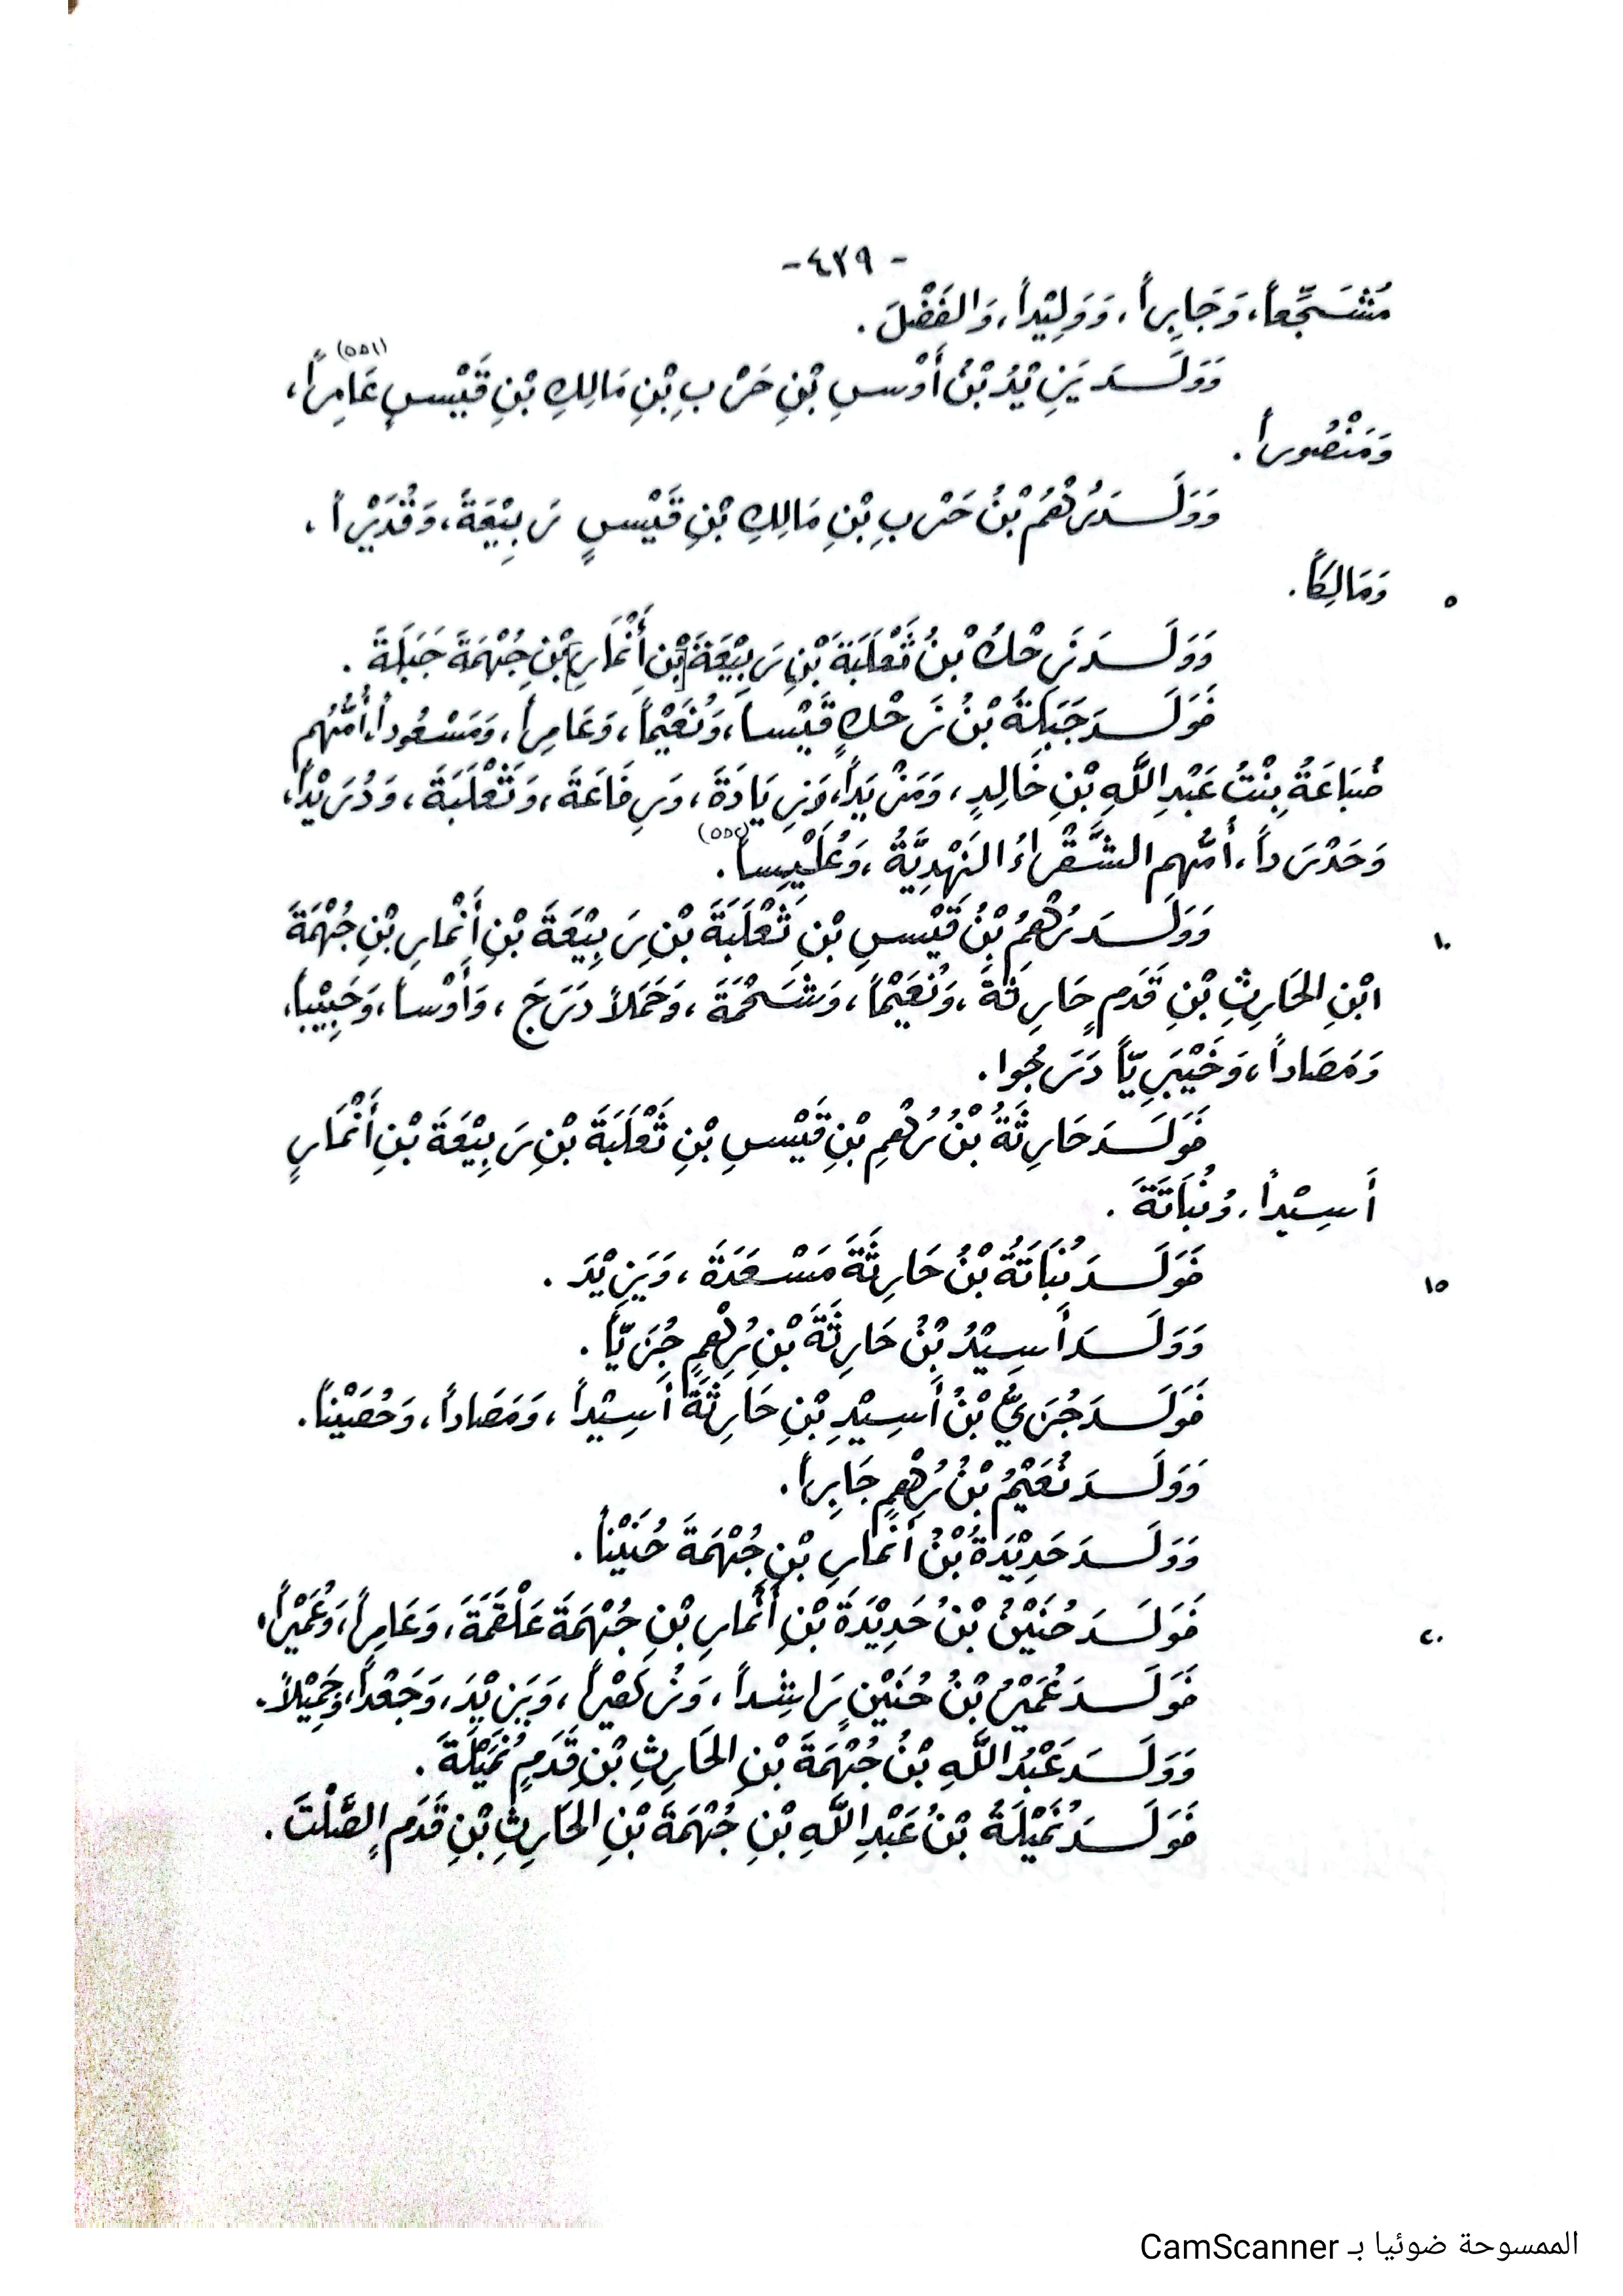 - ٤٣٩ -
مُشَجِّعاً، وَجَابِراً، وَوَلِيْداً، وَالفَضْلَ .
وَوَلَـدَ يَزِيْدُ بْنُ أَوْسِ بْنِ حَرْبِ بْنِ مَالِكِ بْنِ قَيْسٍ عَامِراً(٥٥١)،
وَمَنْصُوراً .
وَوَلَـدَ رُهْمُ بْنُ حَرْبِ بْنِ مَالِكِ بْنِ قَيْسٍ رَبِيْعَةَ، وَقُدَيْراً ،
٥ وَمَالِكاً .
وَوَلَـدَ زَحْكُ بْنُ ثَعْلَبَةَ بْنِ رَبِيْعَةَ [بْنِ أَنْمَارِ] بْنِ جُهْمَةَ جَبَلَةَ .
فَوَلَـدَ جَبَلَةُ بْنُ زَحْكٍ قَيْساً، وَنُعَيْماً، وَعَامِراً، وَمَسْعُوداً، أُمُّهُم
ضُبَاعَةُ بِنْتُ عَبْدِ اللَّهِ بْنِ خَالِدٍ، وَمَزْيَداً، وَزِيَادَةَ، وَرِفَاعَةَ، وَثَعْلَبَةَ، وَدُرَيْداً،
وَحَدْرَداً، أُمُّهم الشَّقْرَاءُ النَّهْدِيَّةُ، وَعُلَيْساً(٥٥٢).
١٠ وَوَلَـدَ رُهْمُ بْنُ قَيْسِ بْنِ ثَعْلَبَةَ بْنِ رَبِيْعَةَ بْنِ أَنْمارِ بْنِ جُهْمَةَ
ابْنِ الحَارِثِ بْنِ قَدَمٍ حَارِثَةَ، وَنُعَيْماً، وَشَحْمَةَ، وَحَمَلاً دَرَجَ، وَأَوْساً، وَحَبِيْباً،
وَمَصَاداً، وَخَيْبَرِيّاً دَرَجُوا .
فَوَلَـدَ حَارِثَةُ بْنُ رُهْمِ بْنِ قَيْسِ بْنِ ثَعْلَبَةَ بْنِ رَبِيْعَةَ بْنِ أَنْمَارٍ
أَسِيْداً، وَنُبَاتَةَ .
١٥ فَوَلَـدَ نُبَاتَةُ بْنُ حَارِثَةَ مَسْعَدَةَ، وَيَزِيْدَ .
وَوَلَـدَ أَسِيْدُ بْنُ حَارِثَةَ بْنِ رُهْمٍ جُزَيّاً .
فَوَلَـدَ جُزَيُّ بْنُ أَسِيْدِ بْنِ حَارِثَةَ أَسِيْداً، وَمَصَاداً، وَحُصَيْناً .
وَوَلَـدَ نُعَيْمُ بْنُ رُهْمٍ جَابِراً .
وَوَلَـدَ حَدِيْدَةُ بْنُ أَنْمَارِ بْنِ جُهْمَةَ حُنَيْناً .
٢٠ فَوَلَـدَ حُنَيْنُ بْنُ حَدِيْدَةَ بْنِ أَنْمارِ بْنِ جُهْمَةَ عَلْقَمَةَ، وَعَامِراً، وَعُمَيْراً،
فَوَلَـدَ عُمَيْرُ بْنُ حُنَيْنٍ رَاشِداً، وَزُهَيْراً، وَيَزِيْدَ، وَجَعْداً، وَجَمِيْلاً .
وَوَلَـدَ عَبْدُ اللَّهِ بْنُ جُهْمَةَ بْنِ الحَارِثِ بْنِ قَدَمٍ نُمَيْلَةَ .
فَوَلَـدَ نُمَيْلَةُ بْنُ عَبْدِ اللَّهِ بْنِ جُهْمَةَ بْنِ الحَارِثِ بْنِ قَدَمٍ الصَّلْتَ .
الممسوحة ضوئيا بـ CamScanner